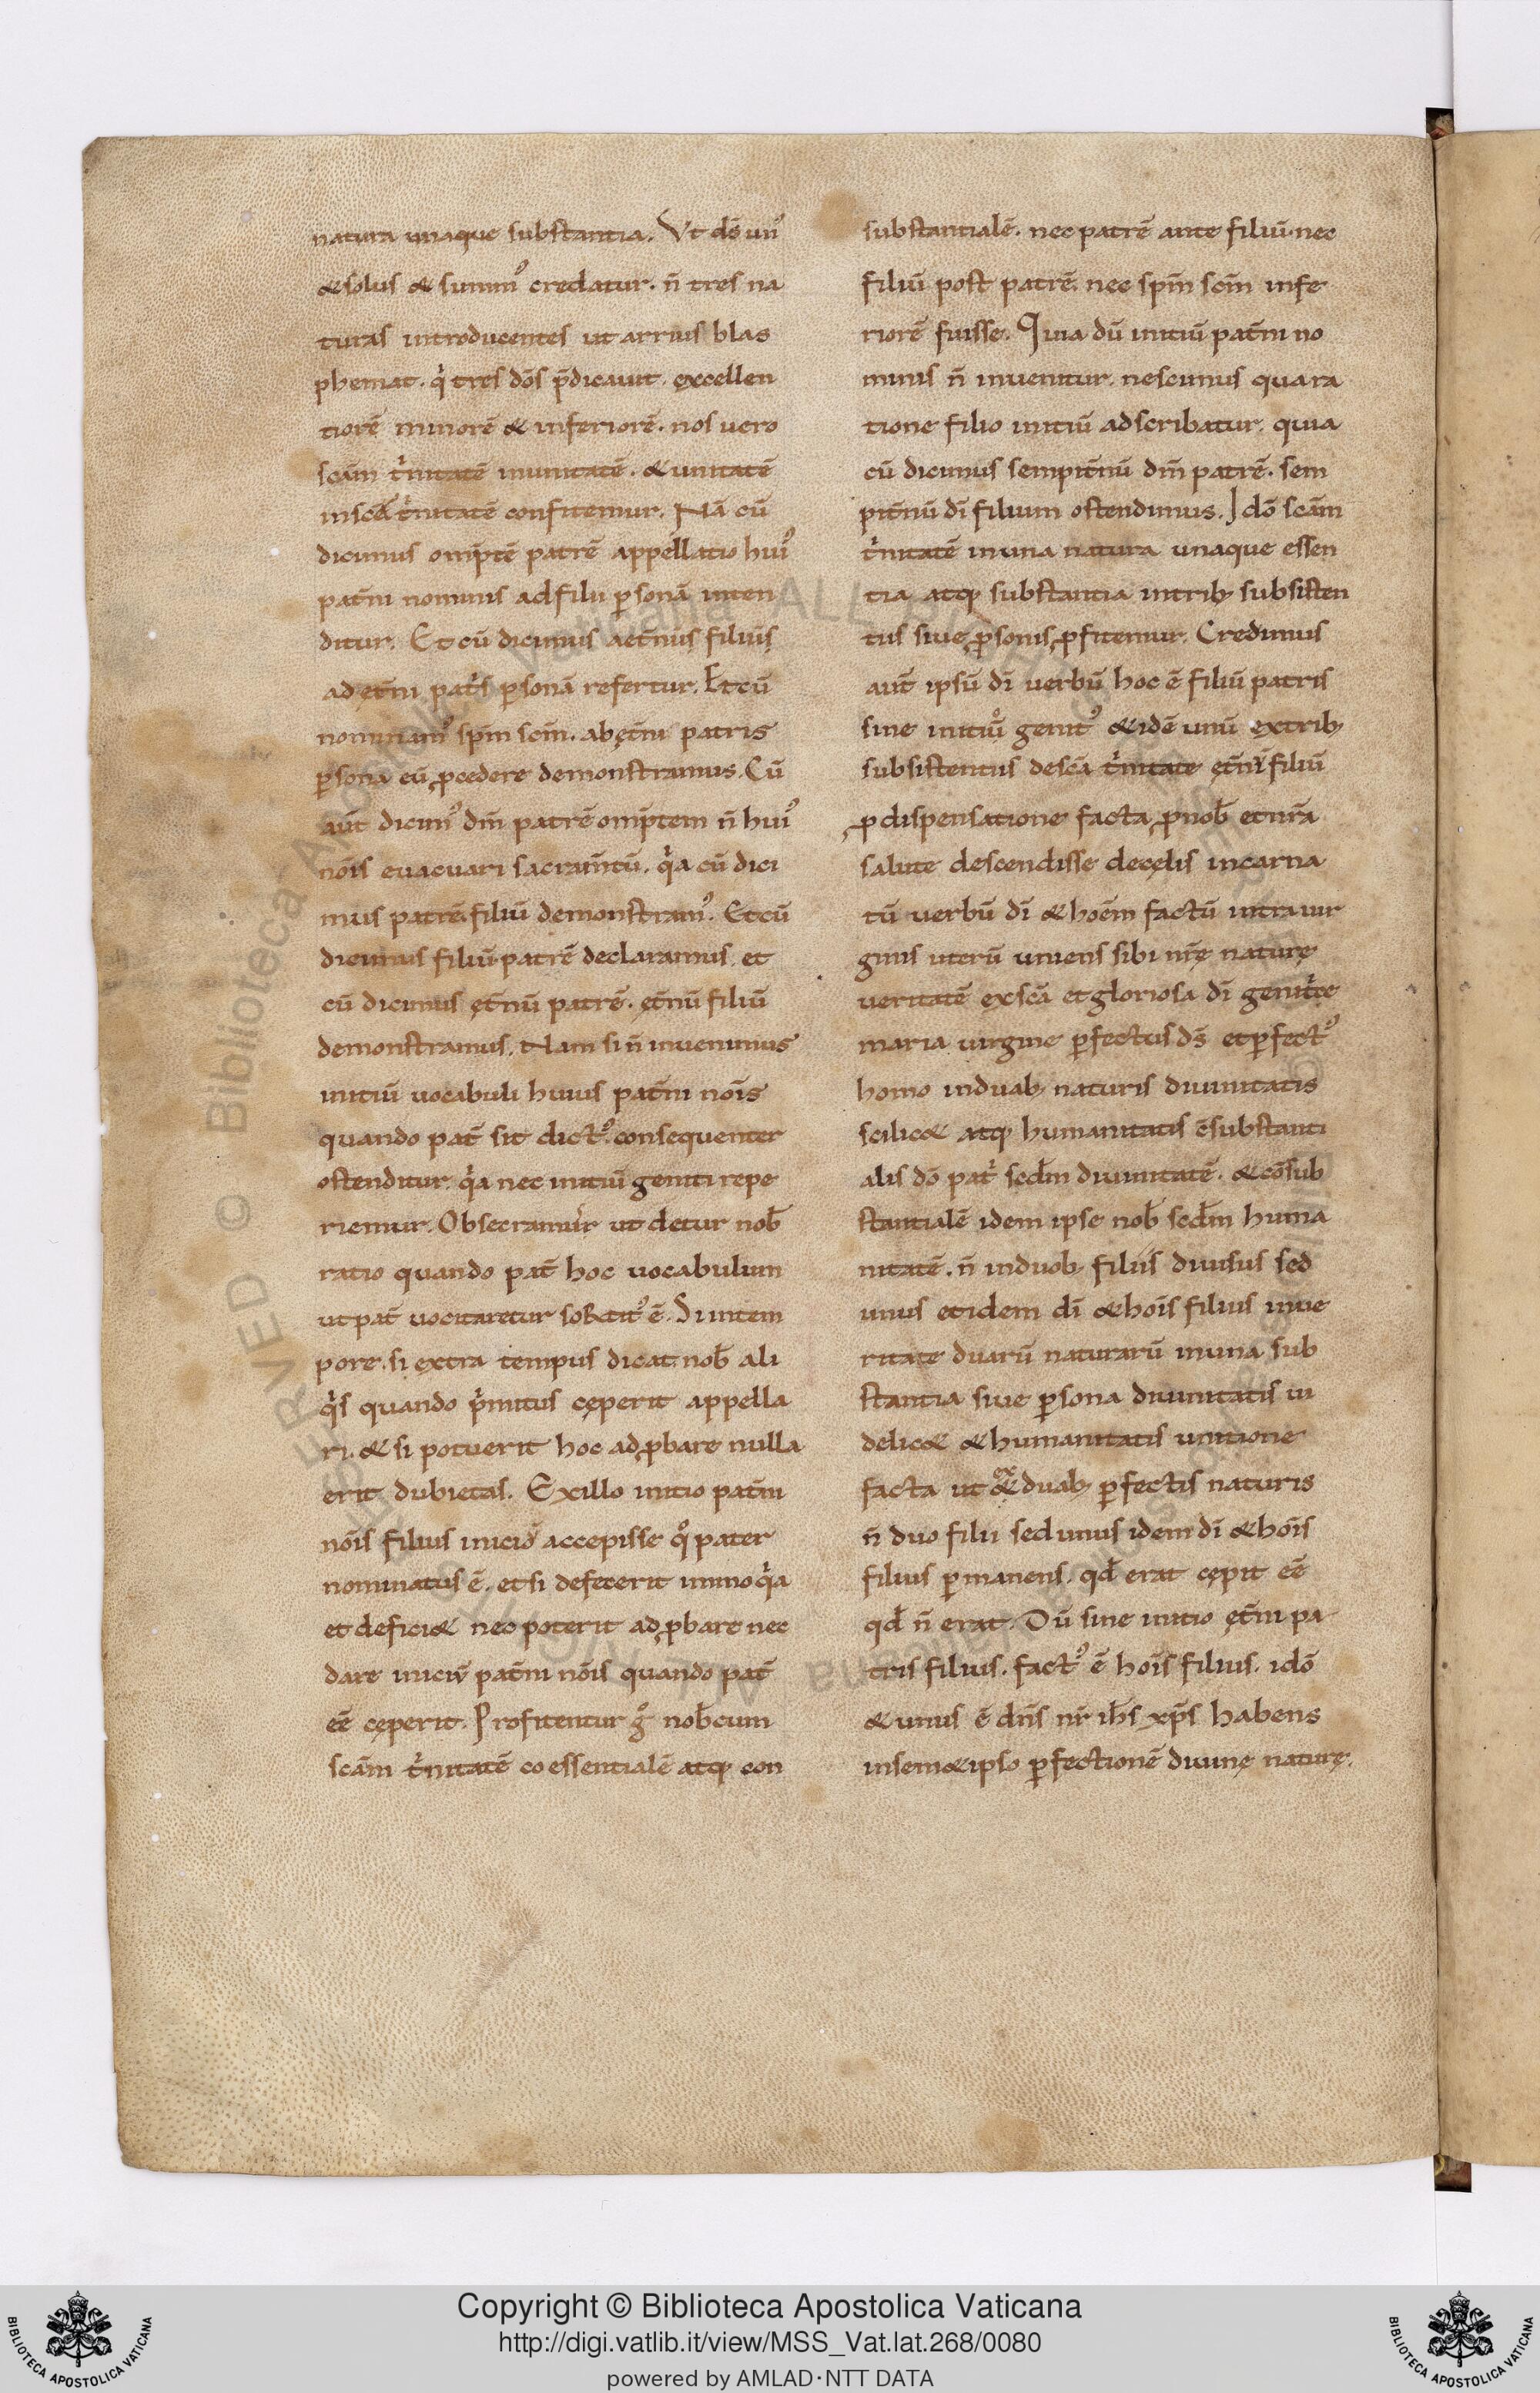 natura unaque substantia. Vt ds̄ unꝰ
& solus & summꝰ credatur. n̄ tres na
turas introducentes ut arrius blas
phemat. qi tres dōs p̄dicauit. excellen
tiorē minorē & inferiorē. nos uero
scām trinitatē inunitatē. & unitatē
inscā trinitatē confitemur. Nā cū
dicimus omp̄tē patrē appellatio huiꝰ
pat̄ni nominis adfilii ꝑsonā inten
ditur. Et cū dicimus aet̄nus filius
ad ęt̄ni patris ꝑsonā refertur. Et cū
nominamꝰ sp̄m scm̄. abęt̄ni patris
ꝑsona eū ꝓcedere demonstramus. Cū
aut̄ dicimꝰ dm̄ patrē omp̄tem n̄ huiꝰ
nōis euacuari sacram̄tū. qia cū dici
mus patrē. filiū demonstramꝰ. Et cū
dicimus filiū patrē declaramus. et
cū dicimus ęt̄nū patrē. ęt̄nū filiū
demonstramus. Nam si n̄ inuenimus
initiū uocabuli huius pat̄ni nōis
quando pat̄ sit dictꝰ. consequenter
ostenditur. qia nec initiū geniti repe
riemur. Obsecramur ut detur nob̄
ratio quando pat̄ hoc uocabulum
ut pat̄ uocitaretur sortitꝰ ē. Si intem
pore. si extra tempus dicat nob̄ ali
qis quando p̄mitus cęperit appella
ri. & si potuerit hoc adꝓbare nulla
erit dubietas. Exillo initio pat̄ni
nōis filius inicio accepisse qo pater
nominatus ē. et si defecerit immo qia
et defici& nec poterit adꝓbare nec
dare iniciū pat̄ni nōis quando pat̄
eē cęperit. Profitentur go nob̄cum
scām trinitatē coessentialē atqꝫ con
substantialē. nec patrē ante filiū. nec
filiū post patrē. nec sp̄m scm̄ infe
riorē fuisse. Quia dū initiū pat̄ni no
minis n̄ inuenitur. nescimus qua ra
tione filio initiū adscribatur. quia
cū dicimus sempit̄nū dm̄ patrē. sem
pit̄nū dī filium ostendimus. Idō scām
trinitatē inuna natura unaque essen
tia atqꝫ substantia intribꝫ subsisten
tiis siue ꝑsonis ꝓfitemur. Credimus
aut̄ ipsū dī uerbū hoc ē filiū patris
sine initiuo genitꝰ & idē unū extribꝫ
subsistentiis descā trinitate ęt̄ni filiū
ꝓ dispensatione facta ꝓ nob̄ et nr̄a
salute descendisse decęlis incarna
tū uerbū dī & hoēm factū intra uir
ginis uterū uniens sibi nr̄ę naturę
ueritatē exscā et gloriosa dī genitce
maria uirgine ꝑfectus ds̄ et ꝑfectꝰ
homo induabꝫ naturis diuinitatis
scilic& atqꝫ humanitatis c̄substanti
alis dō patri secd̄m diuinitatē. & cōsub
stantialē idem ipse nob̄ secd̄m huma
nitatē. n̄ induobꝫ filiis diuisus sed
unus et idem dī & hōis filius inue
ritate duarū naturarū inuna sub
stantia siue ꝑsona diuinitatis ui
delic& & humanitatis unitione
facta ut ex & duabꝫ ꝑfectis naturis
n̄ duo filii sed unus idem dī & hōis
filius ꝑmanens. qd̄ erat cępit eē
qd̄ n̄ erat. Dū sine initio ęt̄ni pa
tris filius. factꝰ ē hōis filius. idō
& unus ē dn̄s nr̄ ih̄s xp̄s habens
insem&ipso ꝑfectionē diuinę naturę.
Copyright © Biblioteca Apostolica Vaticana
http://digi.vatlib.it/view/MSS_Vat.lat.268/0080
powered by AMLAD·NTT DATA
BIBLIOTECA APOSTOLICA VATICANA
BIBLIOTECA APOSTOLICA VATICANA